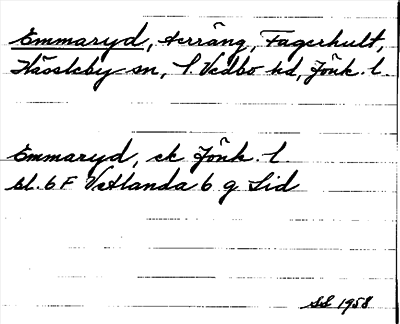 Emmaryd, terräng, Fagerhult,
Hässleby sn, S. Vedbo hd, Jönk. l.
Emmaryd, ek Jönk. l.
bl. 6 F Vetlanda 6 g Lid
SS 1958